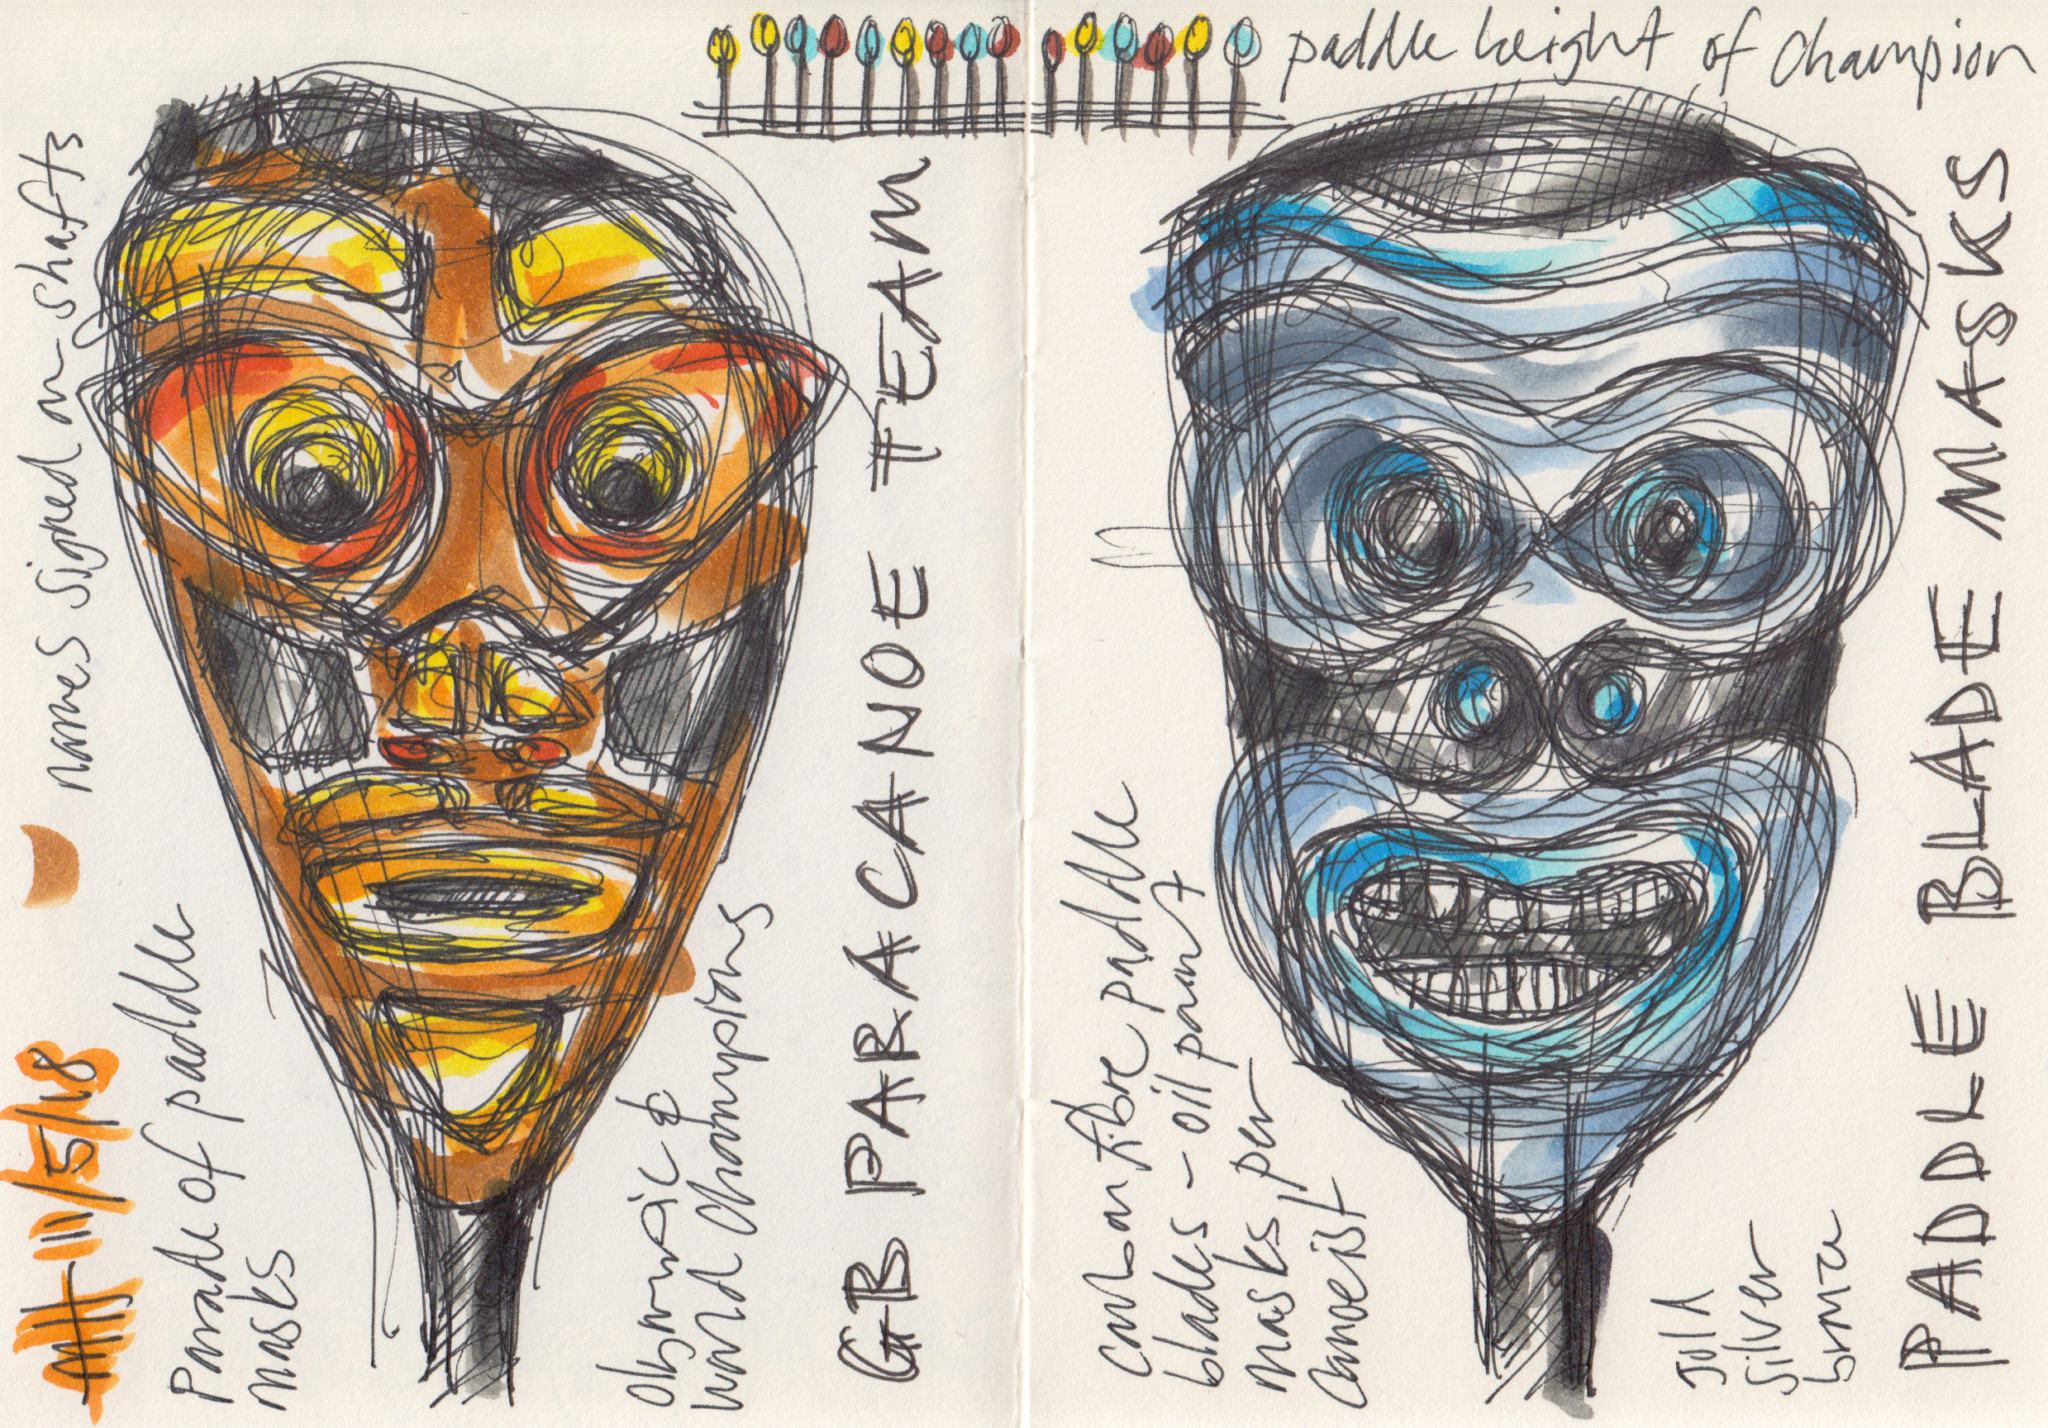 paddle height of champion
names signed on shafts
11/5/18
Parade of paddle
masks
Olympic &
world champions
GB PARACANOE TEAM
carbon fibre paddle
blades - oil paint
masks per
canoeist
gold
silver
bronze
PADDLE BLADE MASKS